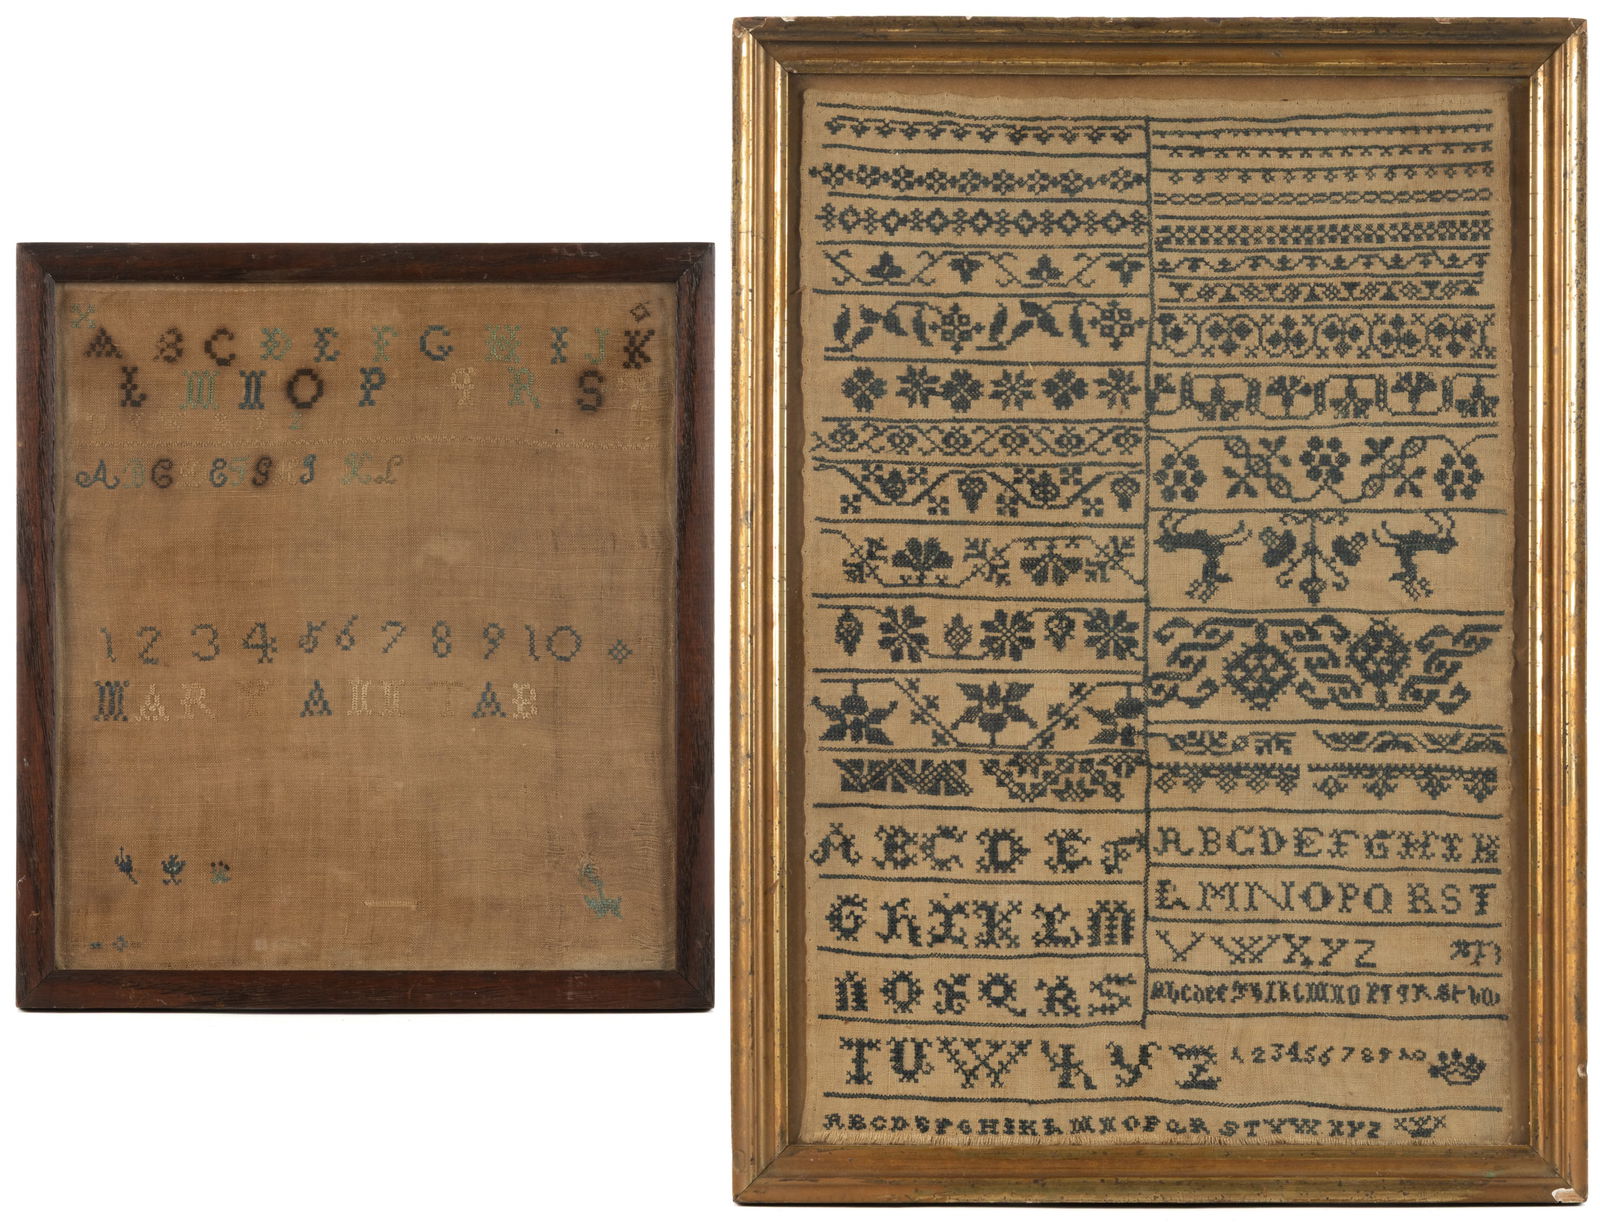 A B C D E F G H I J K
L M N O P q R S
Z
A B C D E F G H I K L
1 2 3 4 5 6 7 8 9 10
MARY ANN TAB
A B C D E F
G H I K L M
N O P Q R S
T U W X Y Z 1 2 3 4 5 6 7 8 9 10
A B C D E F G H I K L M N O P Q R S T V W X Y Z
A B C D E F G H I K
L M N O P Q R S T
V W X Y Z